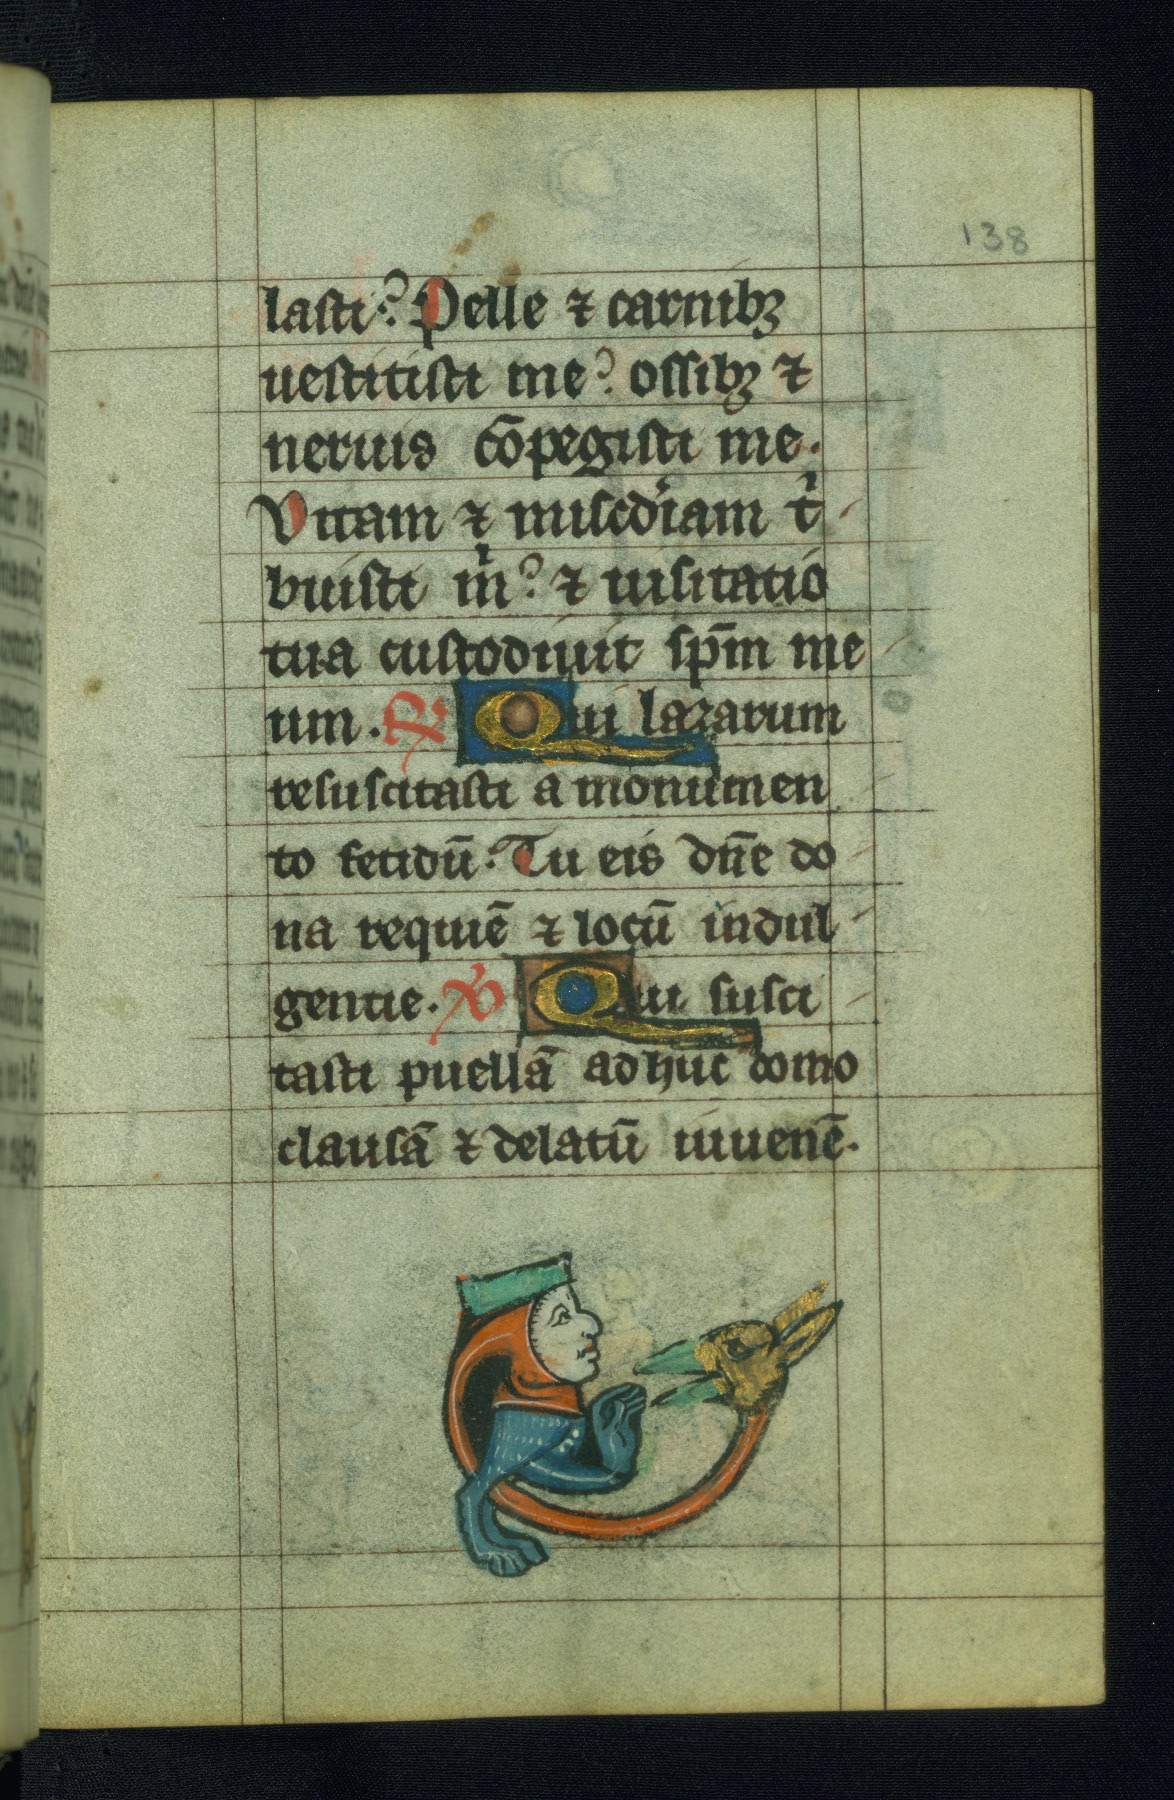 138
lasti? Pelle ⁊ carnibꝫ
uestitisti me? ossibꝫ ⁊
neruis cōpegisti me.
Vitam ⁊ misc̄diam tͥ
buisti mͥ? ⁊ uisitatio
tua custodiuit sp̄m me
um. ℟ Qui lazarum
resuscitasti a monumen
to fetidū. Tu eis dn̄e do
na requiē ⁊ locū indul
gentie. ℣ Qui susci
tasti puellā adhuc domo
clausā ⁊ delatū iuuenē.